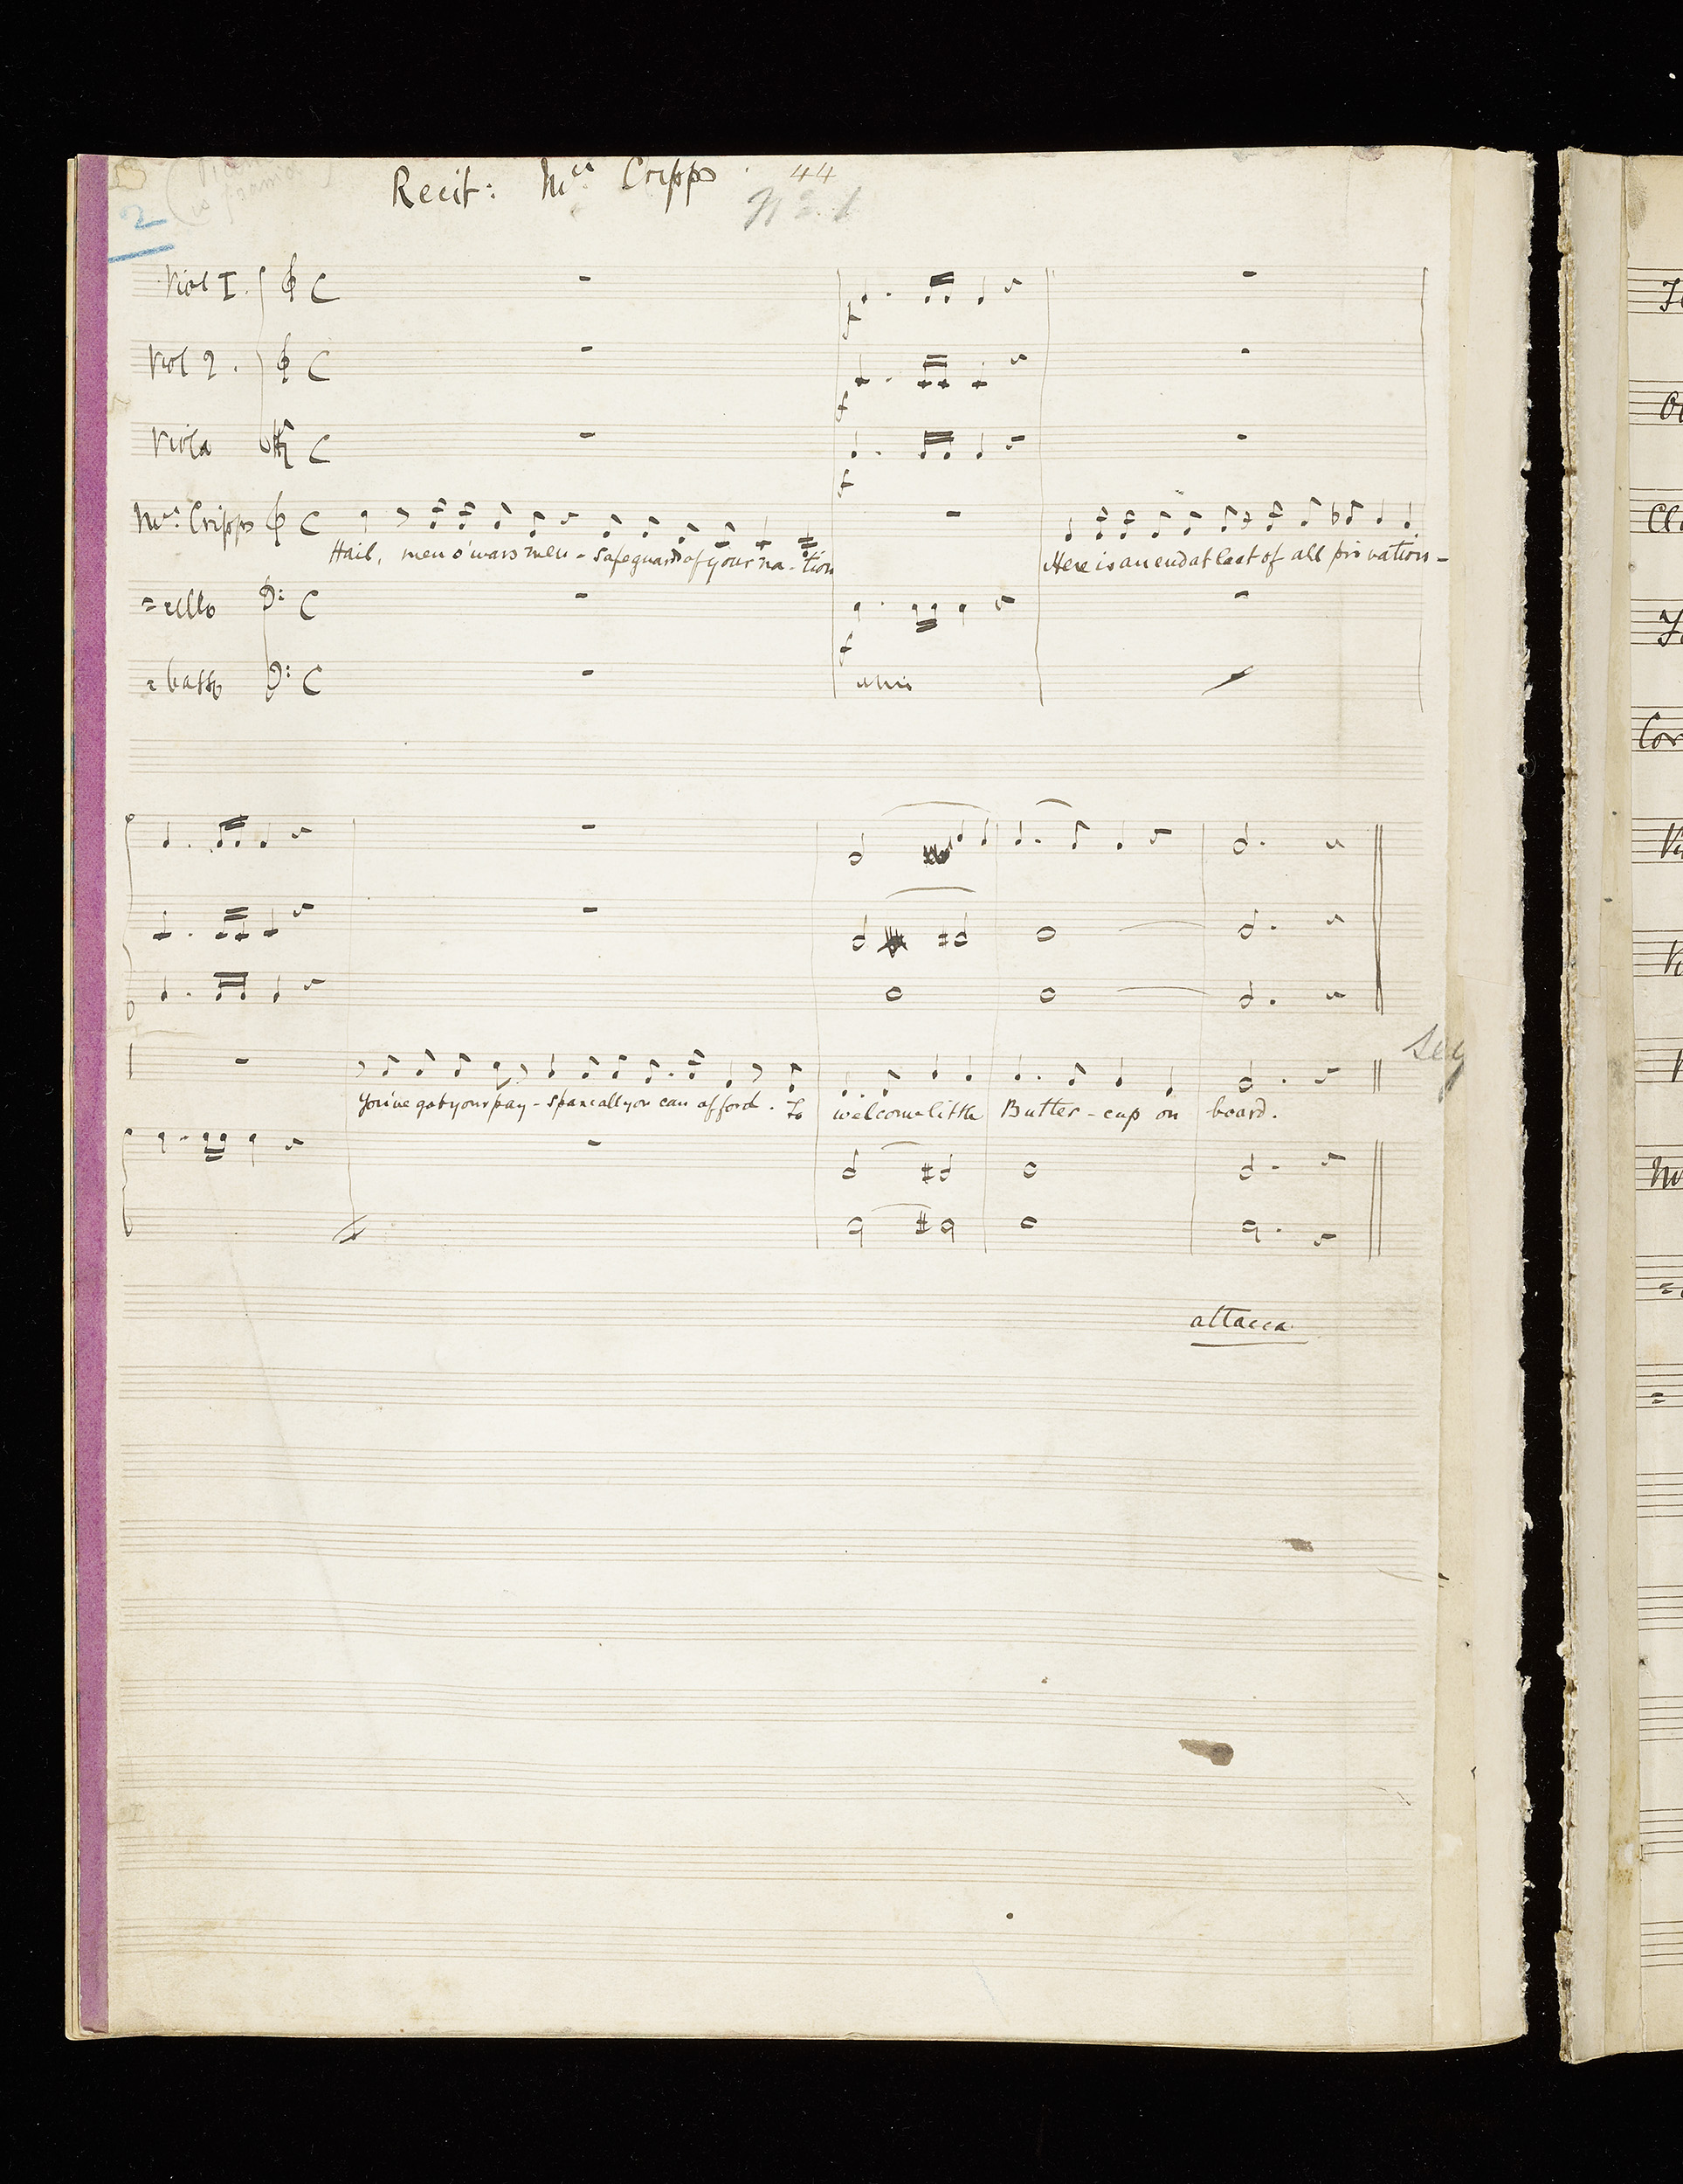 Recit: Mrs Cripps. 44
No. 1
2
Viol I. C
Viol 2. C
Viola C
f
f
f
Mrs: Cripps C
Hail, men o'wars men - safeguards of your na - tion
Here is an end at last of all privation -
=cello C
f
=basso C
unis
Seg
You've got your pay - spare all you can afford. To welcome little Butter - cup on board.
attacca